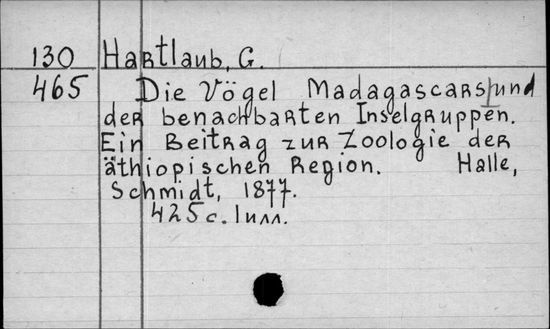 130 Hartlaub, G.
465 Die Vögel Madagascars und
der benachbarten Inselgruppen.
Ein Beitrag zur Zoologie der
äthiopischen Region. Halle,
Schmidt, 1877.
425 с. 1 илл.